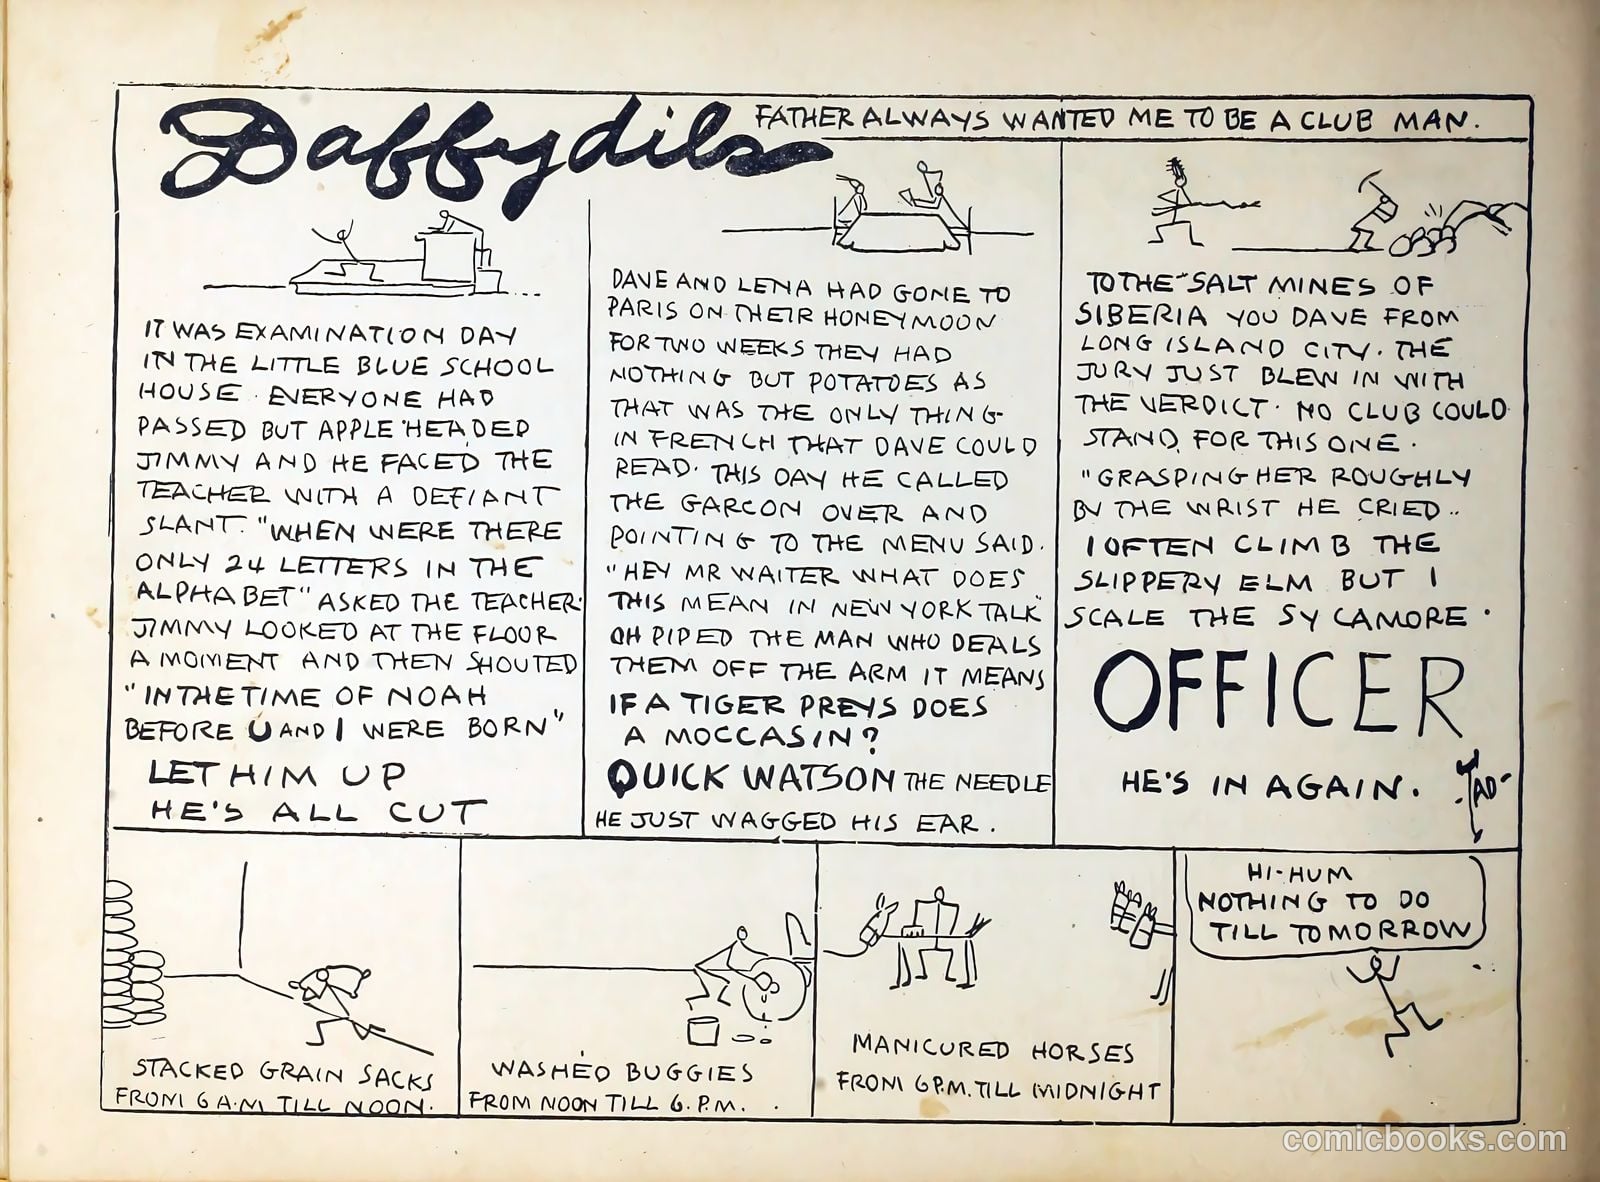 Daffydils
FATHER ALWAYS WANTED ME TO BE A CLUB MAN.
IT WAS EXAMINATION DAY
IN THE LITTLE BLUE SCHOOL
HOUSE. EVERYONE HAD
PASSED BUT APPLE HEADED
JIMMY AND HE FACED THE
TEACHER WITH A DEFIANT
SLANT. "WHEN WERE THERE
ONLY 24 LETTERS IN THE
ALPHABET" ASKED THE TEACHER.
JIMMY LOOKED AT THE FLOOR
A MOMENT AND THEN SHOUTED
"IN THE TIME OF NOAH
BEFORE U AND I WERE BORN"
LET HIM UP
HE'S ALL CUT
DAVE AND LENA HAD GONE TO
PARIS ON THEIR HONEYMOON
FOR TWO WEEKS THEY HAD
NOTHING BUT POTATOES AS
THAT WAS THE ONLY THING
IN FRENCH THAT DAVE COULD
READ. THIS DAY HE CALLED
THE GARCON OVER AND
POINTING TO THE MENU SAID.
"HEY MR WAITER WHAT DOES
THIS MEAN IN NEW YORK TALK"
OH PIPED THE MAN WHO DEALS
THEM OFF THE ARM IT MEANS
IF A TIGER PREYS DOES
A MOCCASIN?
QUICK WATSON THE NEEDLE
HE JUST WAGGED HIS EAR.
TO THE "SALT MINES OF
SIBERIA YOU DAVE FROM
LONG ISLAND CITY. THE
JURY JUST BLEW IN WITH
THE VERDICT. NO CLUB COULD
STAND FOR THIS ONE.
"GRASPING HER ROUGHLY
BY THE WRIST HE CRIED..
I OFTEN CLIMB THE
SLIPPERY ELM BUT I
SCALE THE SYCAMORE.
OFFICER
HE'S IN AGAIN.
TAD
STACKED GRAIN SACKS
FROM 6 A.M TILL NOON.
WASHED BUGGIES
FROM NOON TILL 6. P.M.
MANICURED HORSES
FROM 6 P.M. TILL MIDNIGHT
HI-HUM
NOTHING TO DO
TILL TOMORROW
comicbooks.com